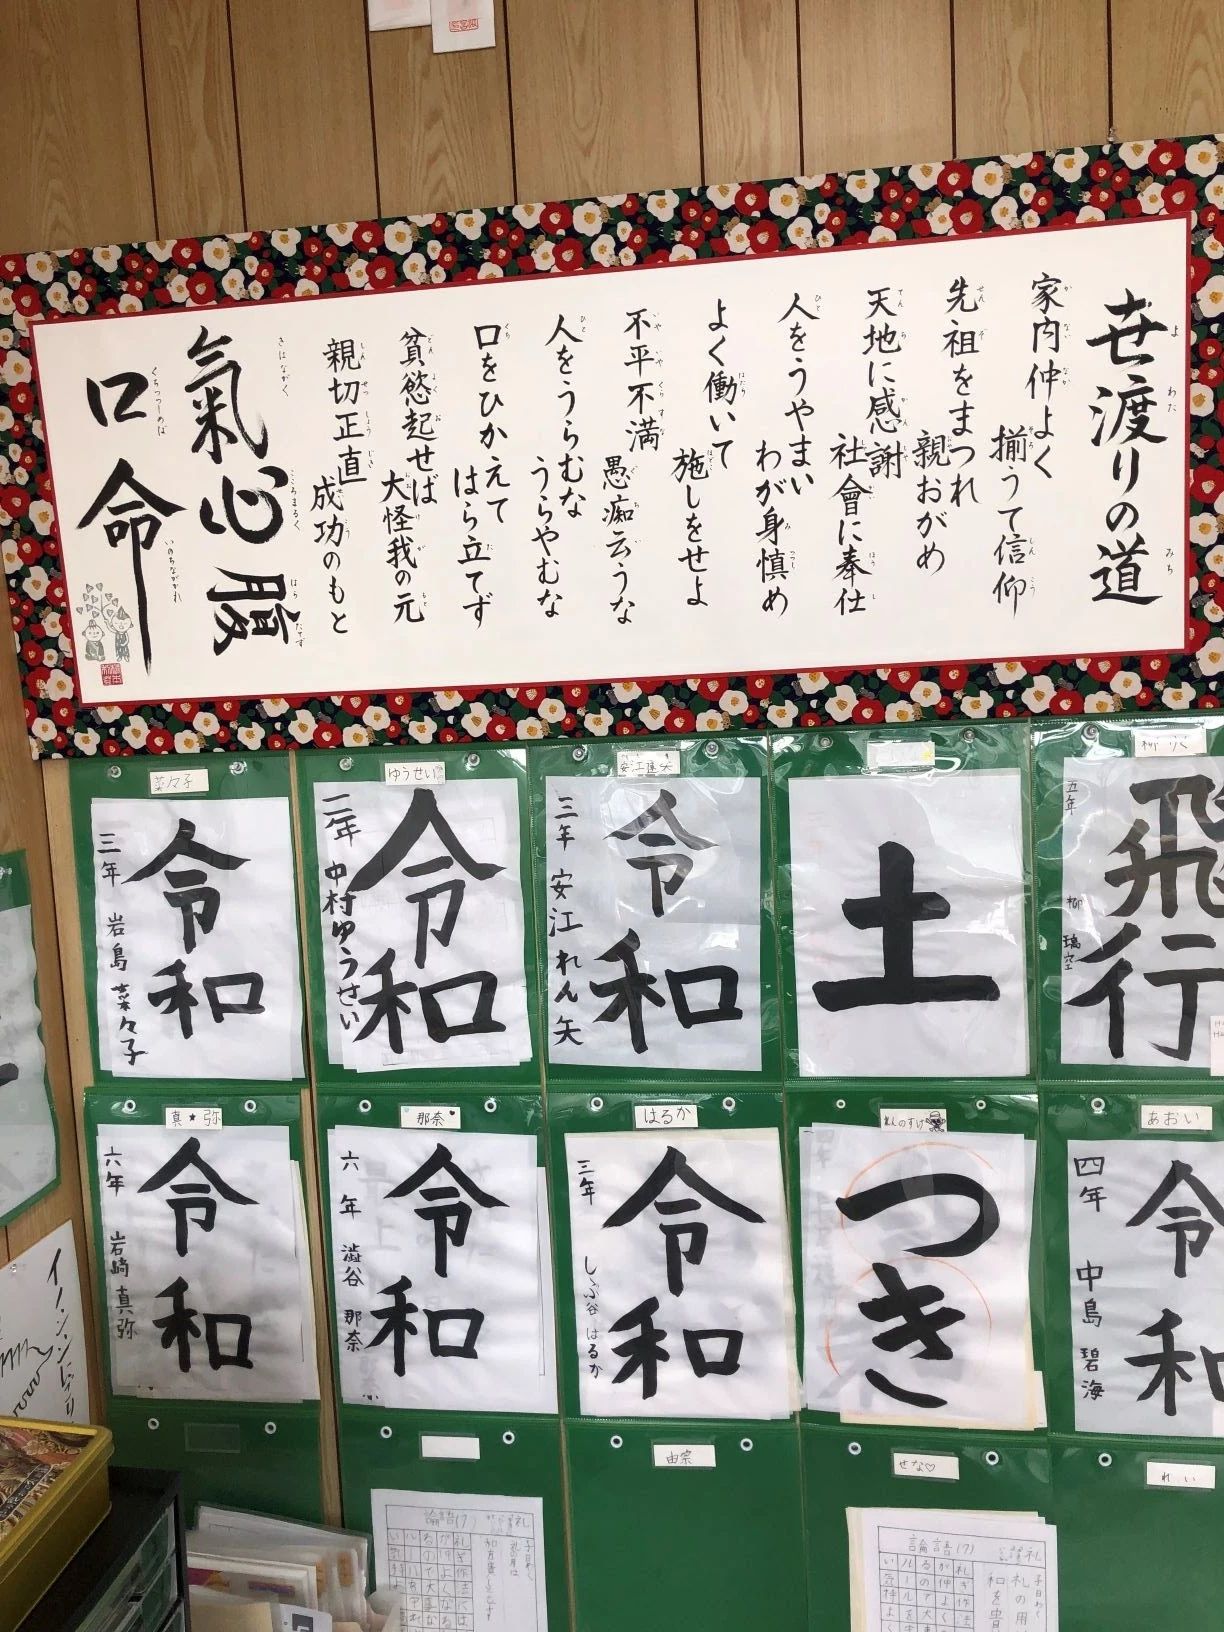 世渡りの道
家内仲よく
揃うて信仰
先祖をまつれ
親おがめ
天地に感謝
社會に奉仕
人をうやまい
わが身慎め
よく働いて
施しをせよ
不平不満
愚痴云うな
人をうらむな
うらやむな
口をひかえて
はら立てず
貧慾起せば
大怪我の元
親切正直
成功のもと
氣心腹
口命
菜々子
令和
三年 岩島 菜々子
ゆうせい
令和
二年 中村ゆうせい
安江蓮矢
令和
三年 安江れん矢
土
飛行
五年 柳 璃空
真★弥
令和
六年 岩崎真弥
那奈
令和
六年 澁谷 那奈
はるか
令和
三年 しぶ谷 はるか
れんのすけ
つき
あおい
令和
四年 中島 碧海
由宗
せな♡
れい
論語(7)
論語(7)